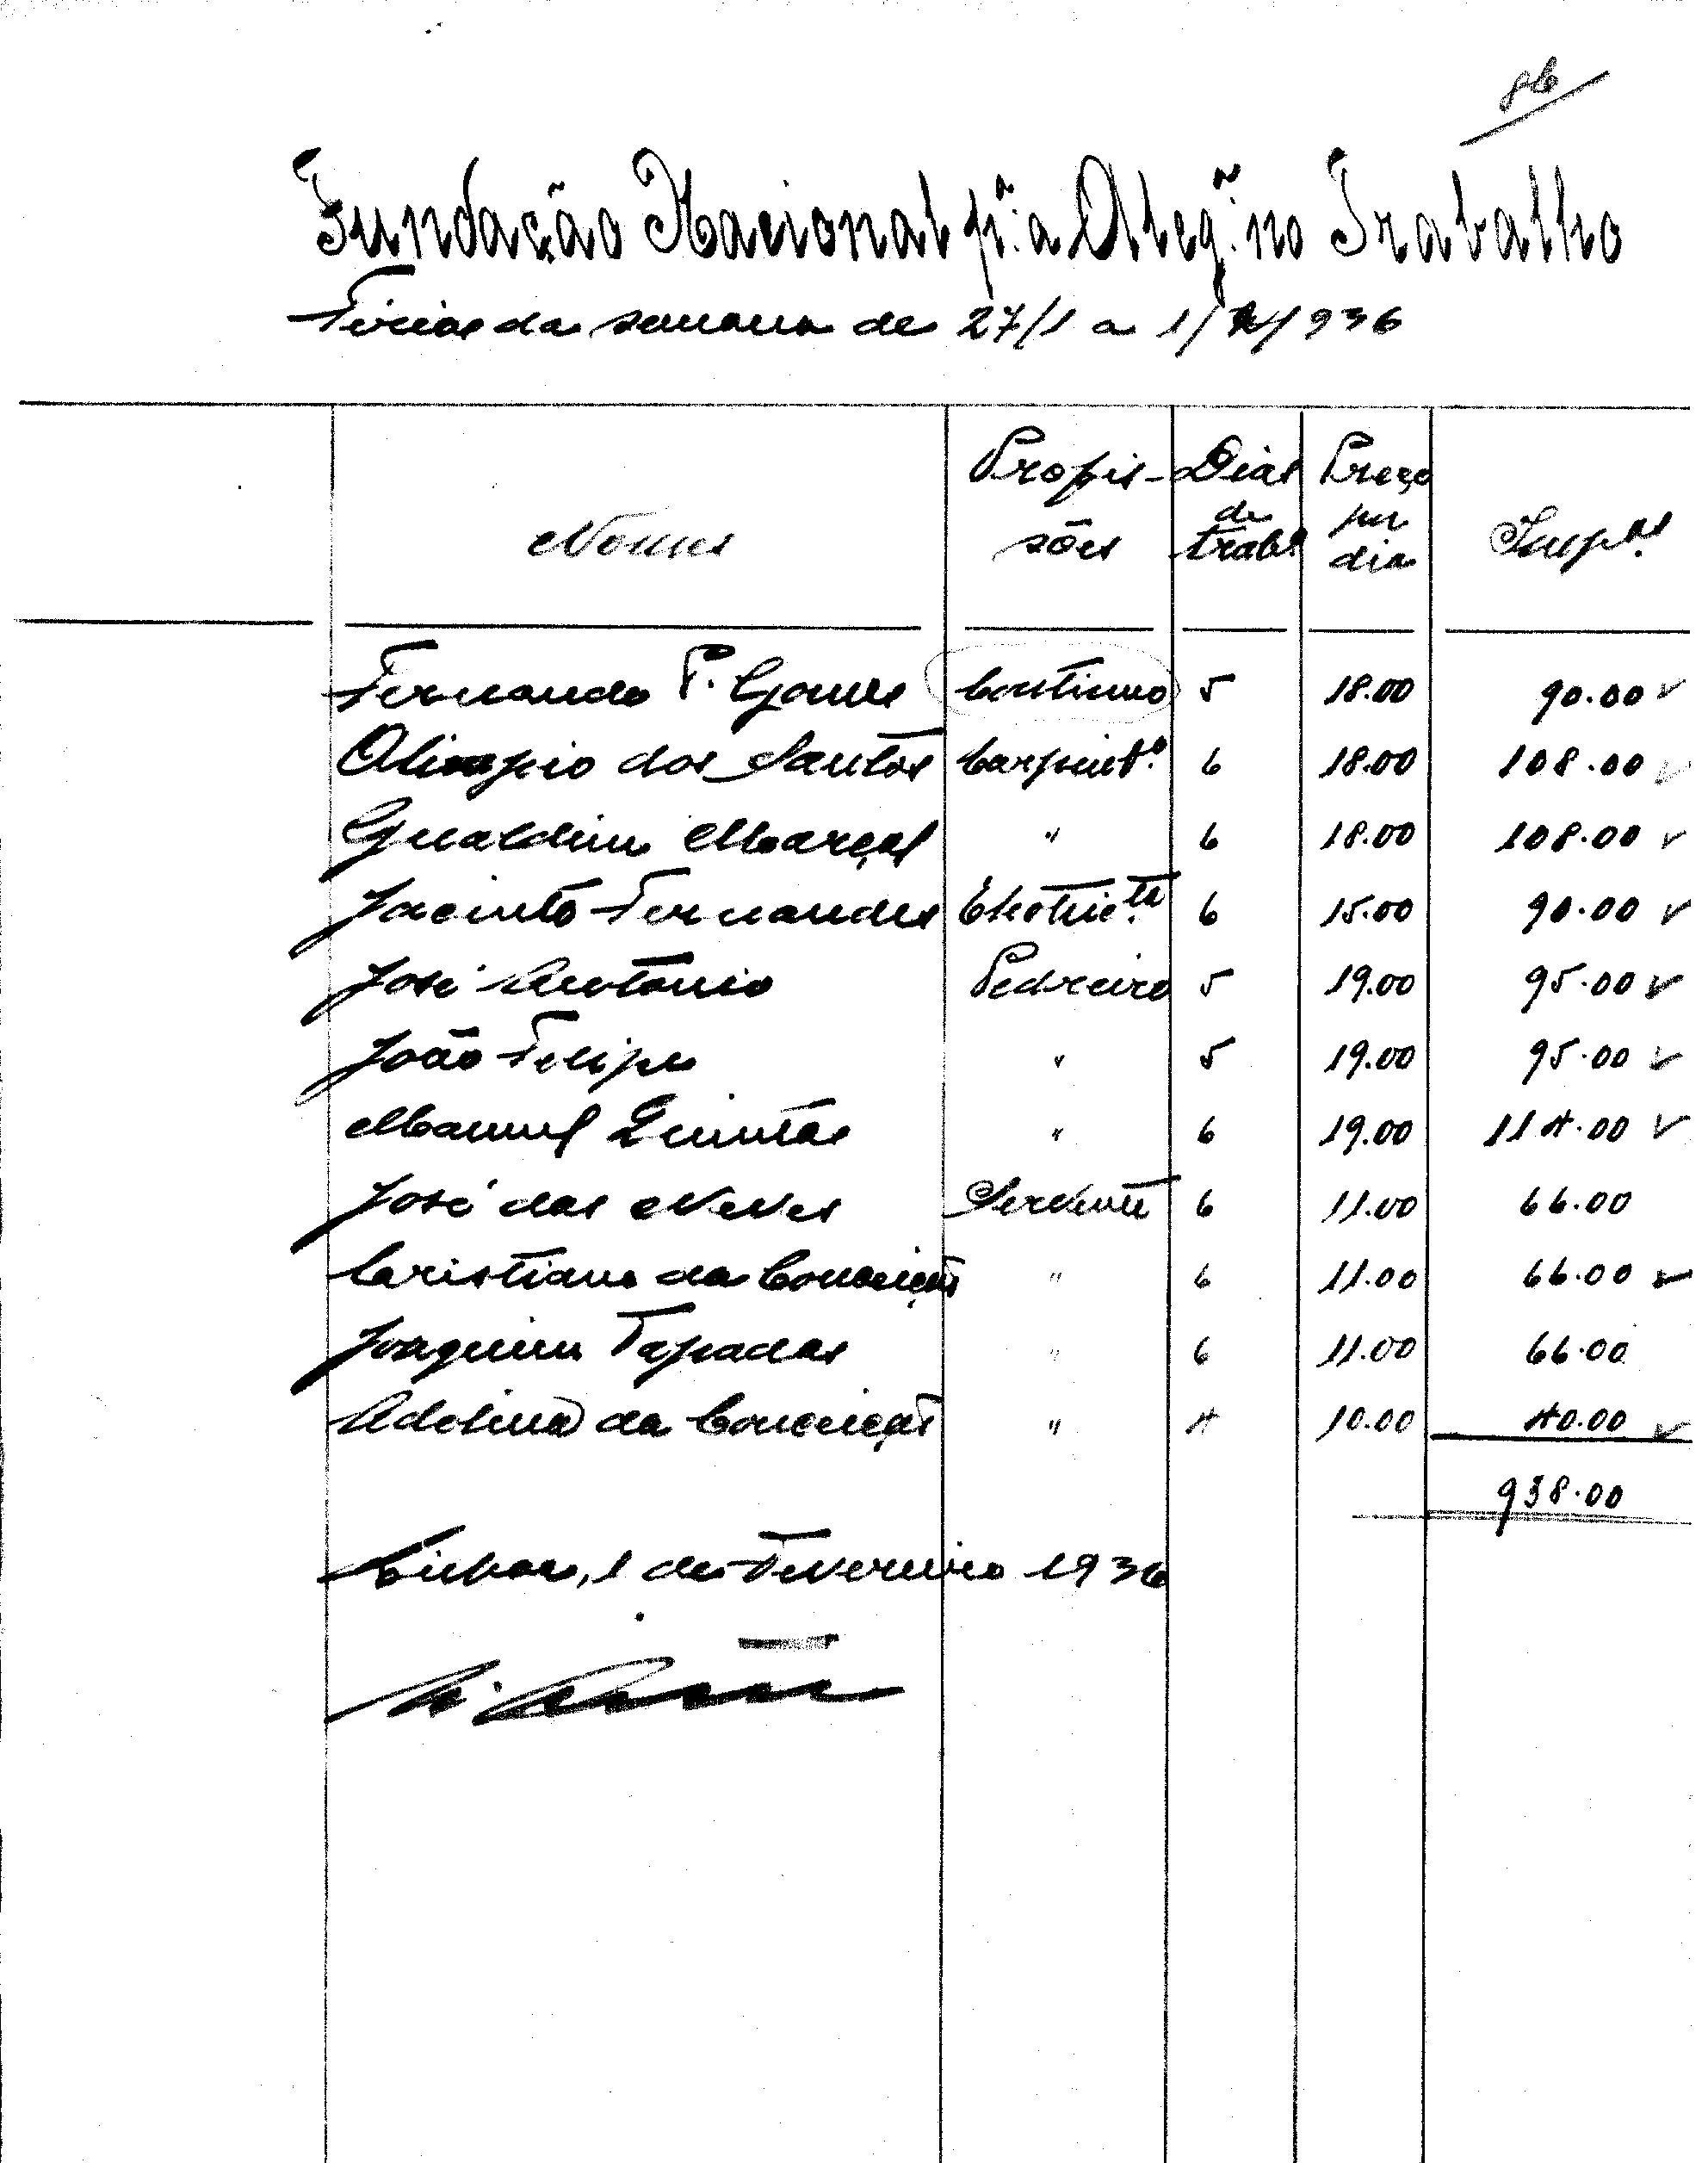 Fundação Nacional p.ª a Aleg.ª no Trabalho
Férias da semana de 27/1 a 1/2/936
Nomes Profissões Dias de trab.º Preço por dia Imp.as
Fernando P. Gomes Contínuo 5 18.00 90.00
Olimpio dos Santos Carpint.º 6 18.00 108.00
Gualdim Marçal " 6 18.00 108.00
Jacinto Fernandes Electric.ta 6 15.00 90.00
José António Pedreiro 5 19.00 95.00
João Felipe " 5 19.00 95.00
Manuel Quintas " 6 19.00 114.00
José das Neves Servente 6 11.00 66.00
Cristiano da Conceição " 6 11.00 66.00
Joaquim Tapadas " 6 11.00 66.00
Adelina da Conceição " 4 10.00 40.00
938.00
Lisboa, 1 de Fevereiro 1936